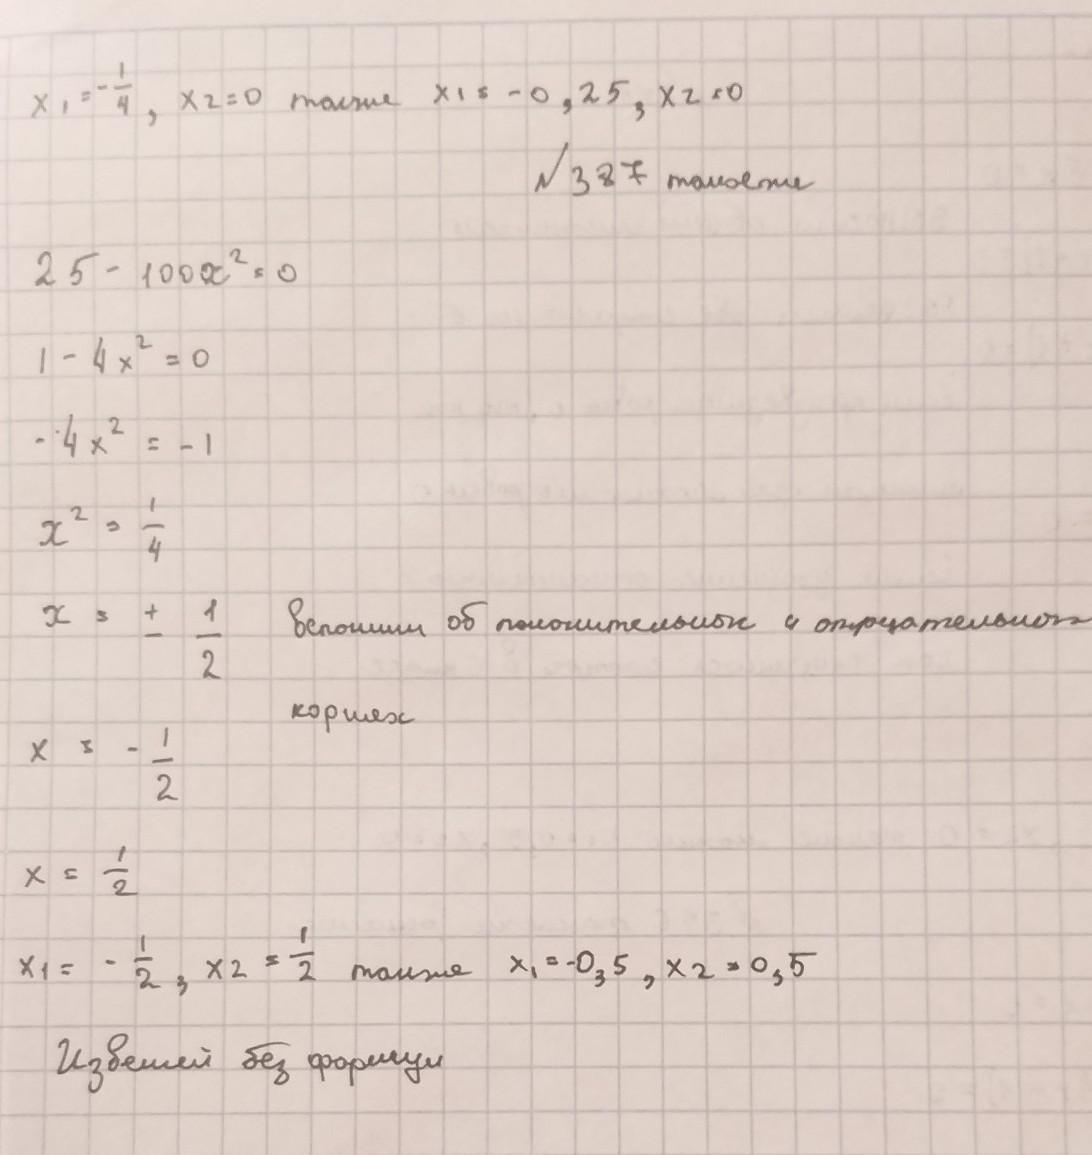 x₁ = -1/4, x2 = 0 также x₁ = -0,25, x2 = 0
№387
25 - 100x² = 0
1 - 4x² = 0
- 4x² = -1
x² = 1/4
x = ± 1/2 Вспомним об положительном и отрицательном
корнях
x = - 1/2
x = 1/2
x1 = - 1/2, x2 = 1/2 также x₁ = -0,5, x2 = 0,5
без формул